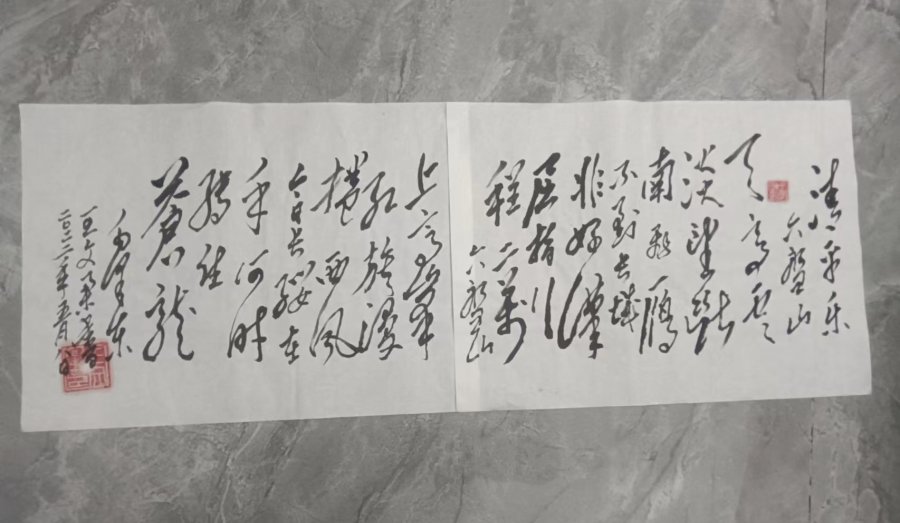 清平乐
六盘山
天高云
淡望断
南飞雁
不到长城
非好汉
屈指行
程二万
六盘山
上高峰
红旗漫
捲西风
今日长缨在
手何时
缚住
苍龙
毛泽东
二〇二二年